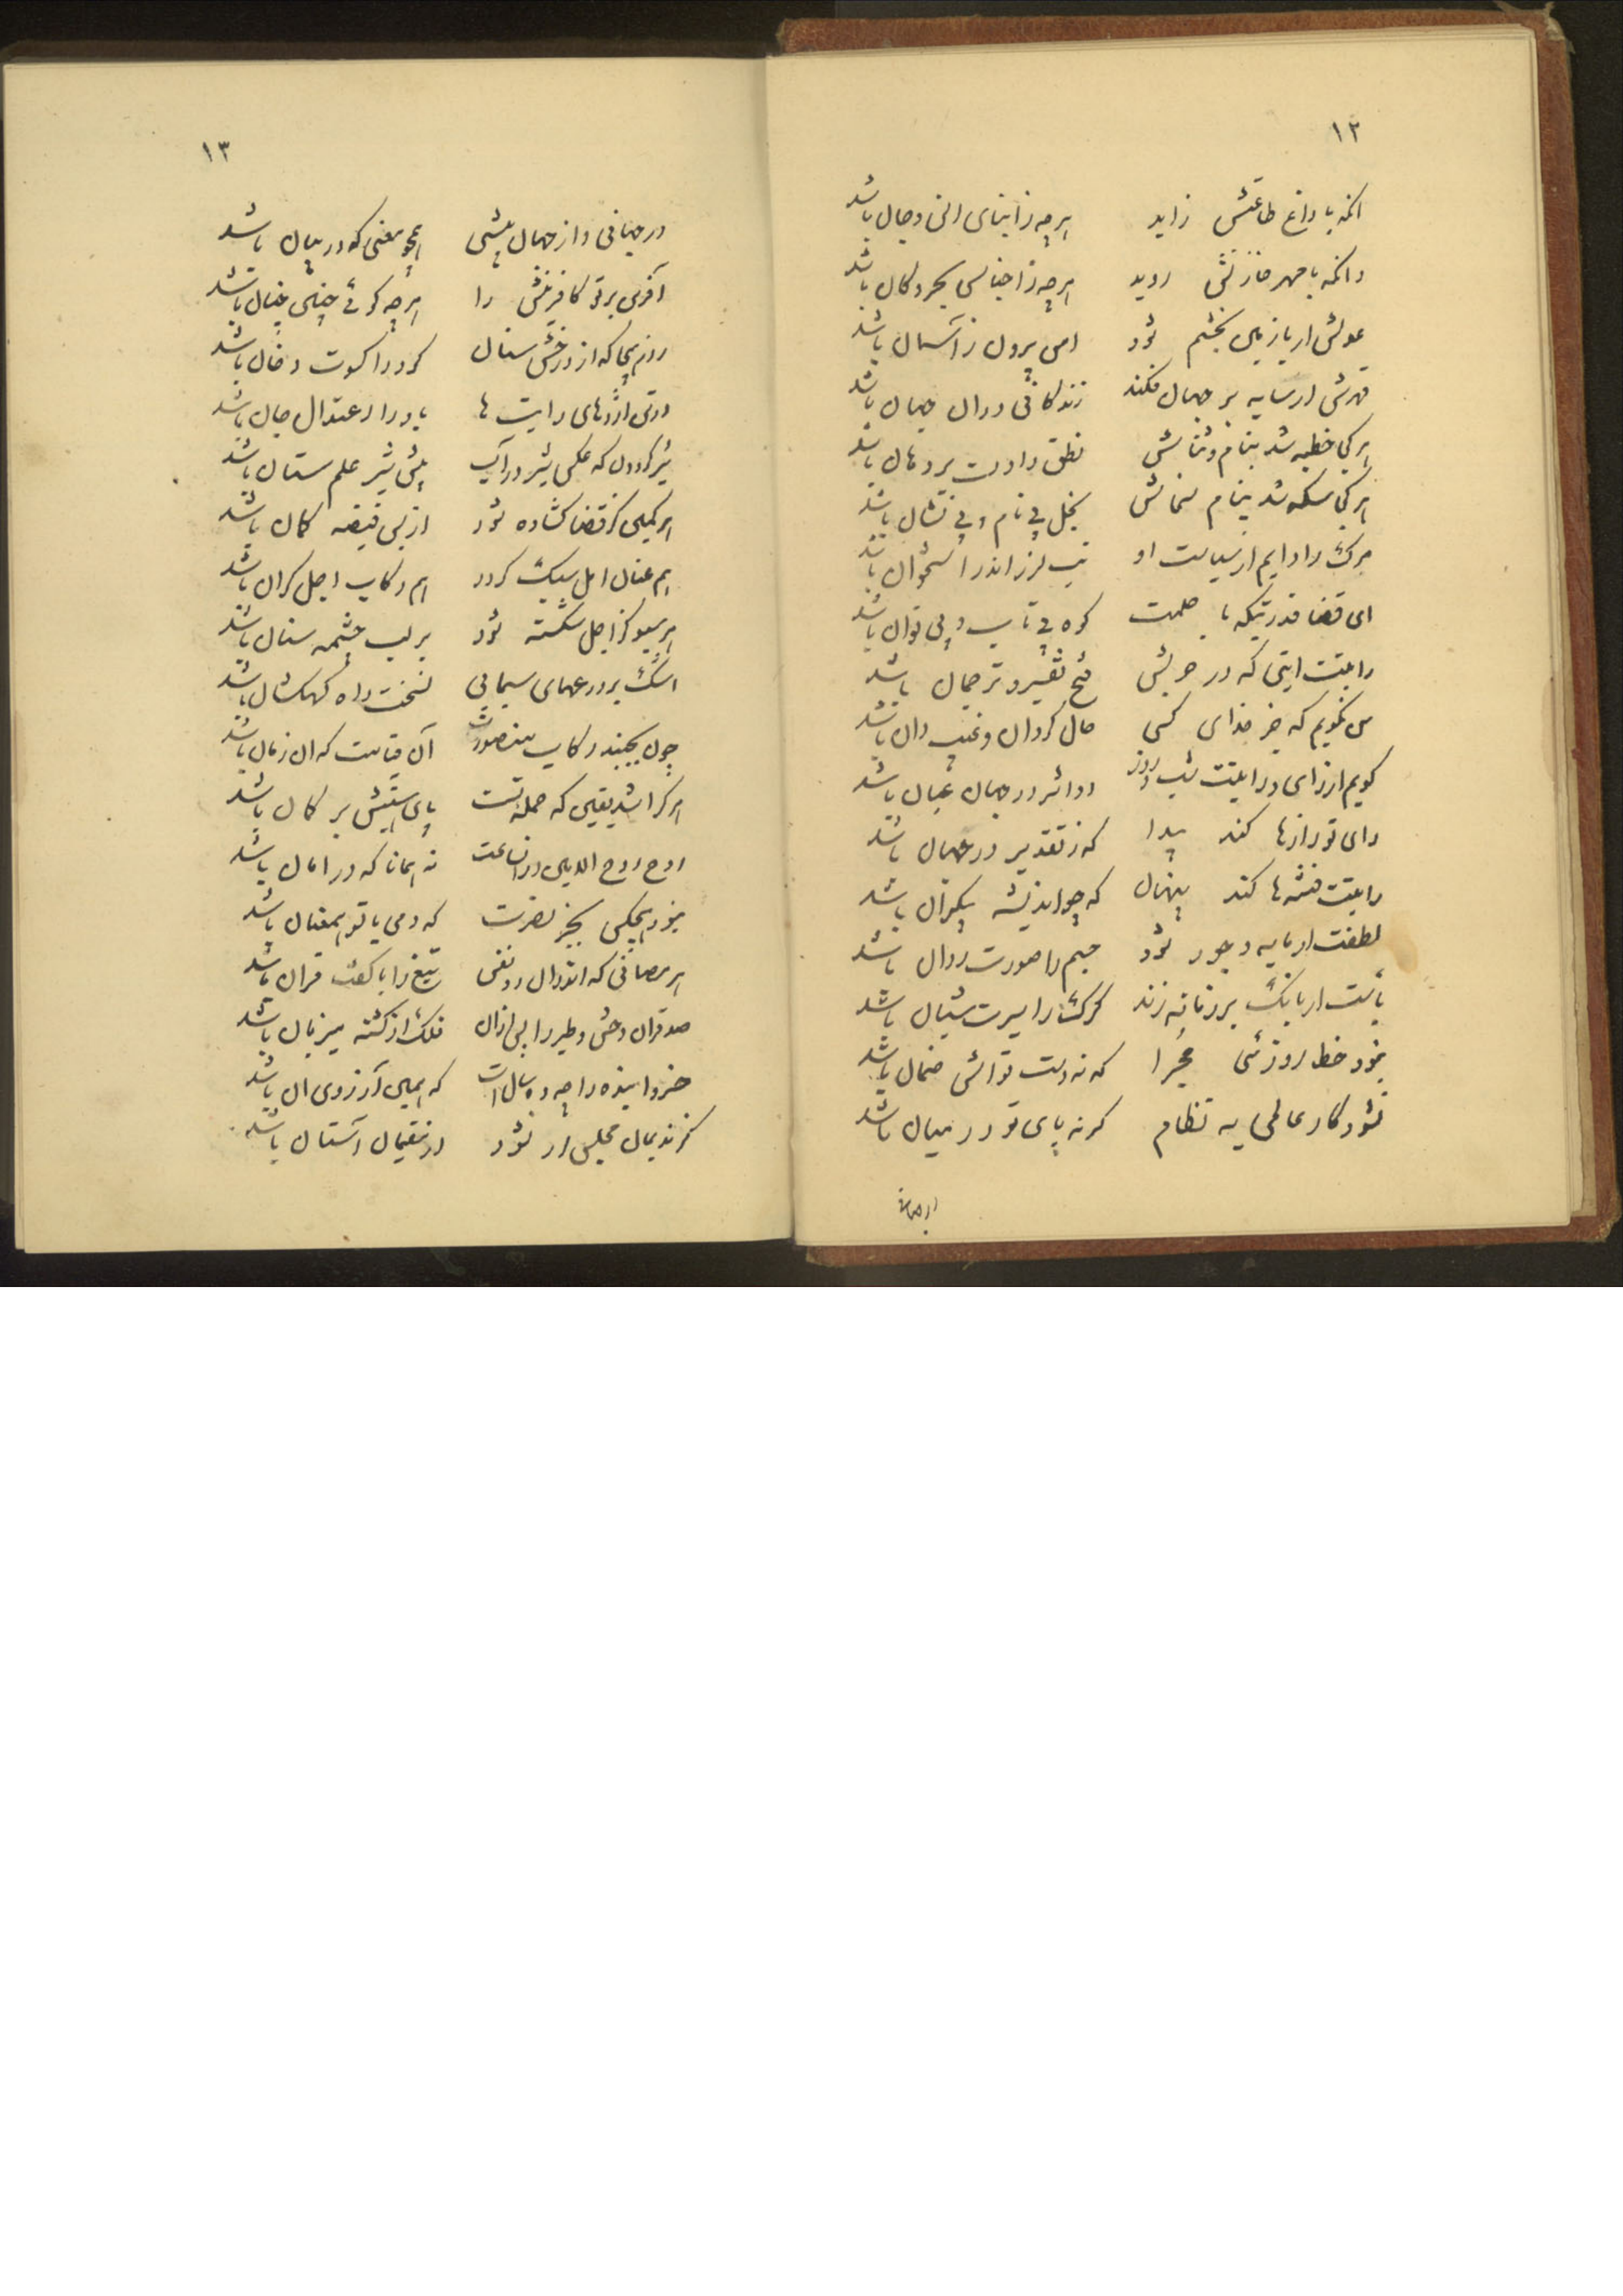 ۱۲
انکه با داغ طاعتش زاید هرچه ز ابنای انس و جان باشد
وانکه با مهر خازنش روید هرچه ز اجناس بحر و کان باشد
عدلش ار با زمین بخشم شود امن بیرون ز آسمان باشد
قهرش ار سایه بر جهان فکند زندکانی دران جهان باشد
هر کجا خطبه شد بنام و ثناش نطق را دست بر دهان باشد
هر کجا سکه شد بنام سخاش بخل بی نام و بی نشان باشد
مرک را دایم از سیاست او تب لرز اندر استخوان باشد
ای قضا قدرتیکه با حلمت کوه بی تاب و بی توان باشد
رایتت ایتی که در حربش فتح تفسیر و ترجمان باشد
من نکویم که جز خدای کسی حال کردان و غیب دان باشد
کویم از رای و رایتت شب و روز دو اثر در جهان عیان باشد
رای تو رازها کند پیدا که ز تقدیر در نهان باشد
رایتت فتنه‌ها کند پنهان که چو اندیشه بیکران باشد
لطفت ار مایه وجود شود جسم را صورت روان باشد
بأست ار بانک بر زمانه زند کرک را سیرت شبان باشد
نبود خط روزئی مجرا که نه دست تواش ضمان باشد
نشود کار عالمی به نظام کر نه پای تو در میان باشد
در جهانی
۱۳
در جهانی و از جهان بیشی همچو معنی که در بیان باشد
آفرین بر تو کافرینش را هرچه کوئی چنین چنان باشد
روز هیجا که از درخش سنان کرد را کسوت دخان باشد
در تن اژدهای رایت ها باد را اعتدال جان باشد
شیر کردون که عکس شیر در آب پیش شیر علم ستان باشد
هر کمین کز قضا کشاده شود از پس قبضه کمان باشد
هم عنان امل سبک کردد هم رکاب اجل کران باشد
هر سبو کز اجل شکسته شود بر لب چشمه سنان باشد
اشک بر درعهای سیمابی نسخت راه کهکشان باشد
چون بجنبد رکاب منصورت آن قیامت که ان زمان باشد
هر کرا شد یقین که حمله تست پای هستیش بر کمان باشد
روح روح الامین دران ساعت نه همانا که در امان باشد
نبود هیچکس بجز نصرت که دمی با تو همعنان باشد
هر مصافی که اندران دو نفس تیغ را با کفت قران باشد
صد قران وحش و طیر را پس ازان فلک از کشته میزبان باشد
خسروا بنده را چو ده سال است که همین آرزوی ان باشد
کز ندیمان مجلس ار نشود از مقیمان آستان باشد